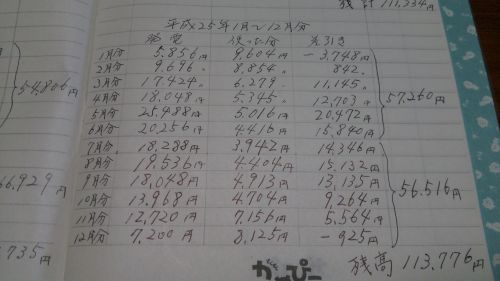 残計 111,234円
平成25年1月〜12月分
売電 使った分 差引き
1月分 5,856円 9,604円 −3,748円
2月分 9,696〃 8,854〃 842〃
3月分 17,424〃 6,279〃 11,145〃
4月分 18,048円 5,345〃 12,703円
5月分 25,488円 5,016円 20,472円
6月分 20,256円 4,416円 15,840円
57,260円
7月分 18,288円 3,942円 14,346円
8月分 19,536円 4,404円 15,132円
9月分 18,048円 4,913円 13,135円
10月分 13,968円 4,704円 9,264円
11月分 12,720円 7,156円 5,564円
12月分 7,200円 8,125円 −925円
56,516円
残高 113,776円
54,806円
6,929円
735円